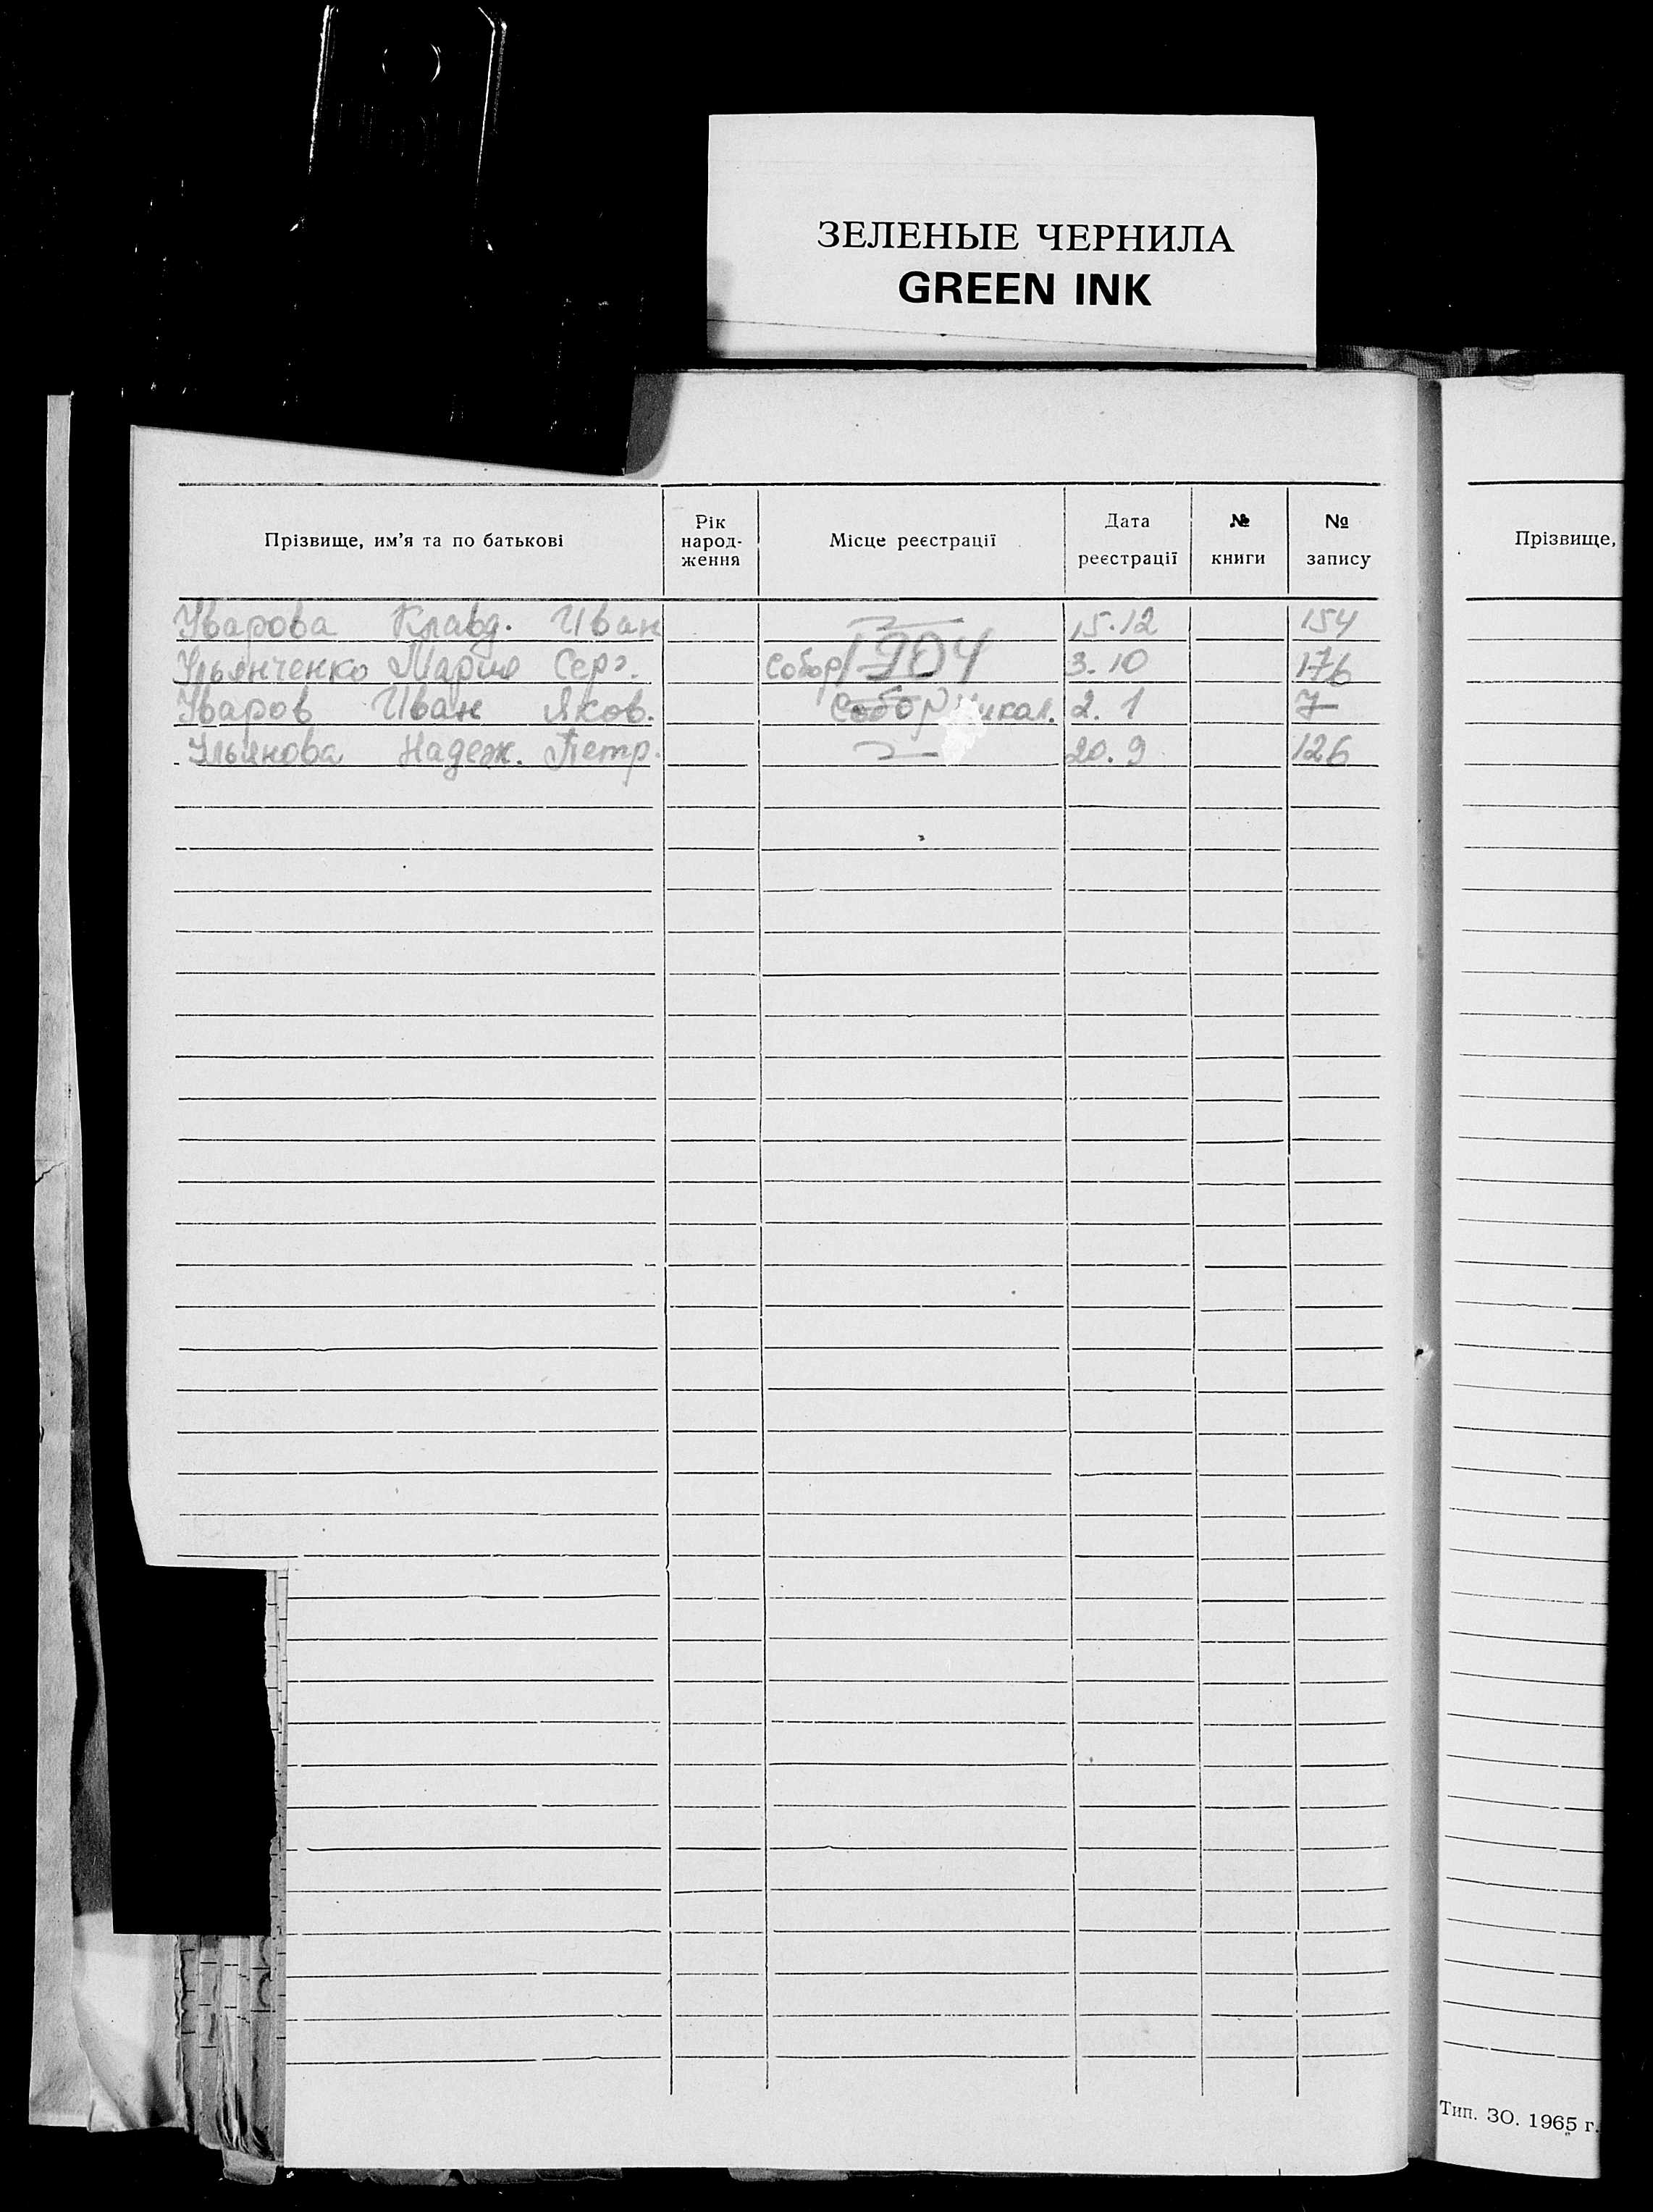 ЗЕЛЕНЫЕ ЧЕРНИЛА
GREEN INK
Прізвище, им'я та по батькові
Рік народ-ження
Місце реєстрації
Дата реєстрації
№ книги
№ запису
Прізвище,
Уварова Клавд. Иван 15.12 154
Ульянченко Мария Серг. Собор 1904 3. 10 176
Уваров Иван Яков. Собор 2. 1 7
Ульянова Надеж. Петр. 20. 9 126
Тип. ЗО. 1965 г.